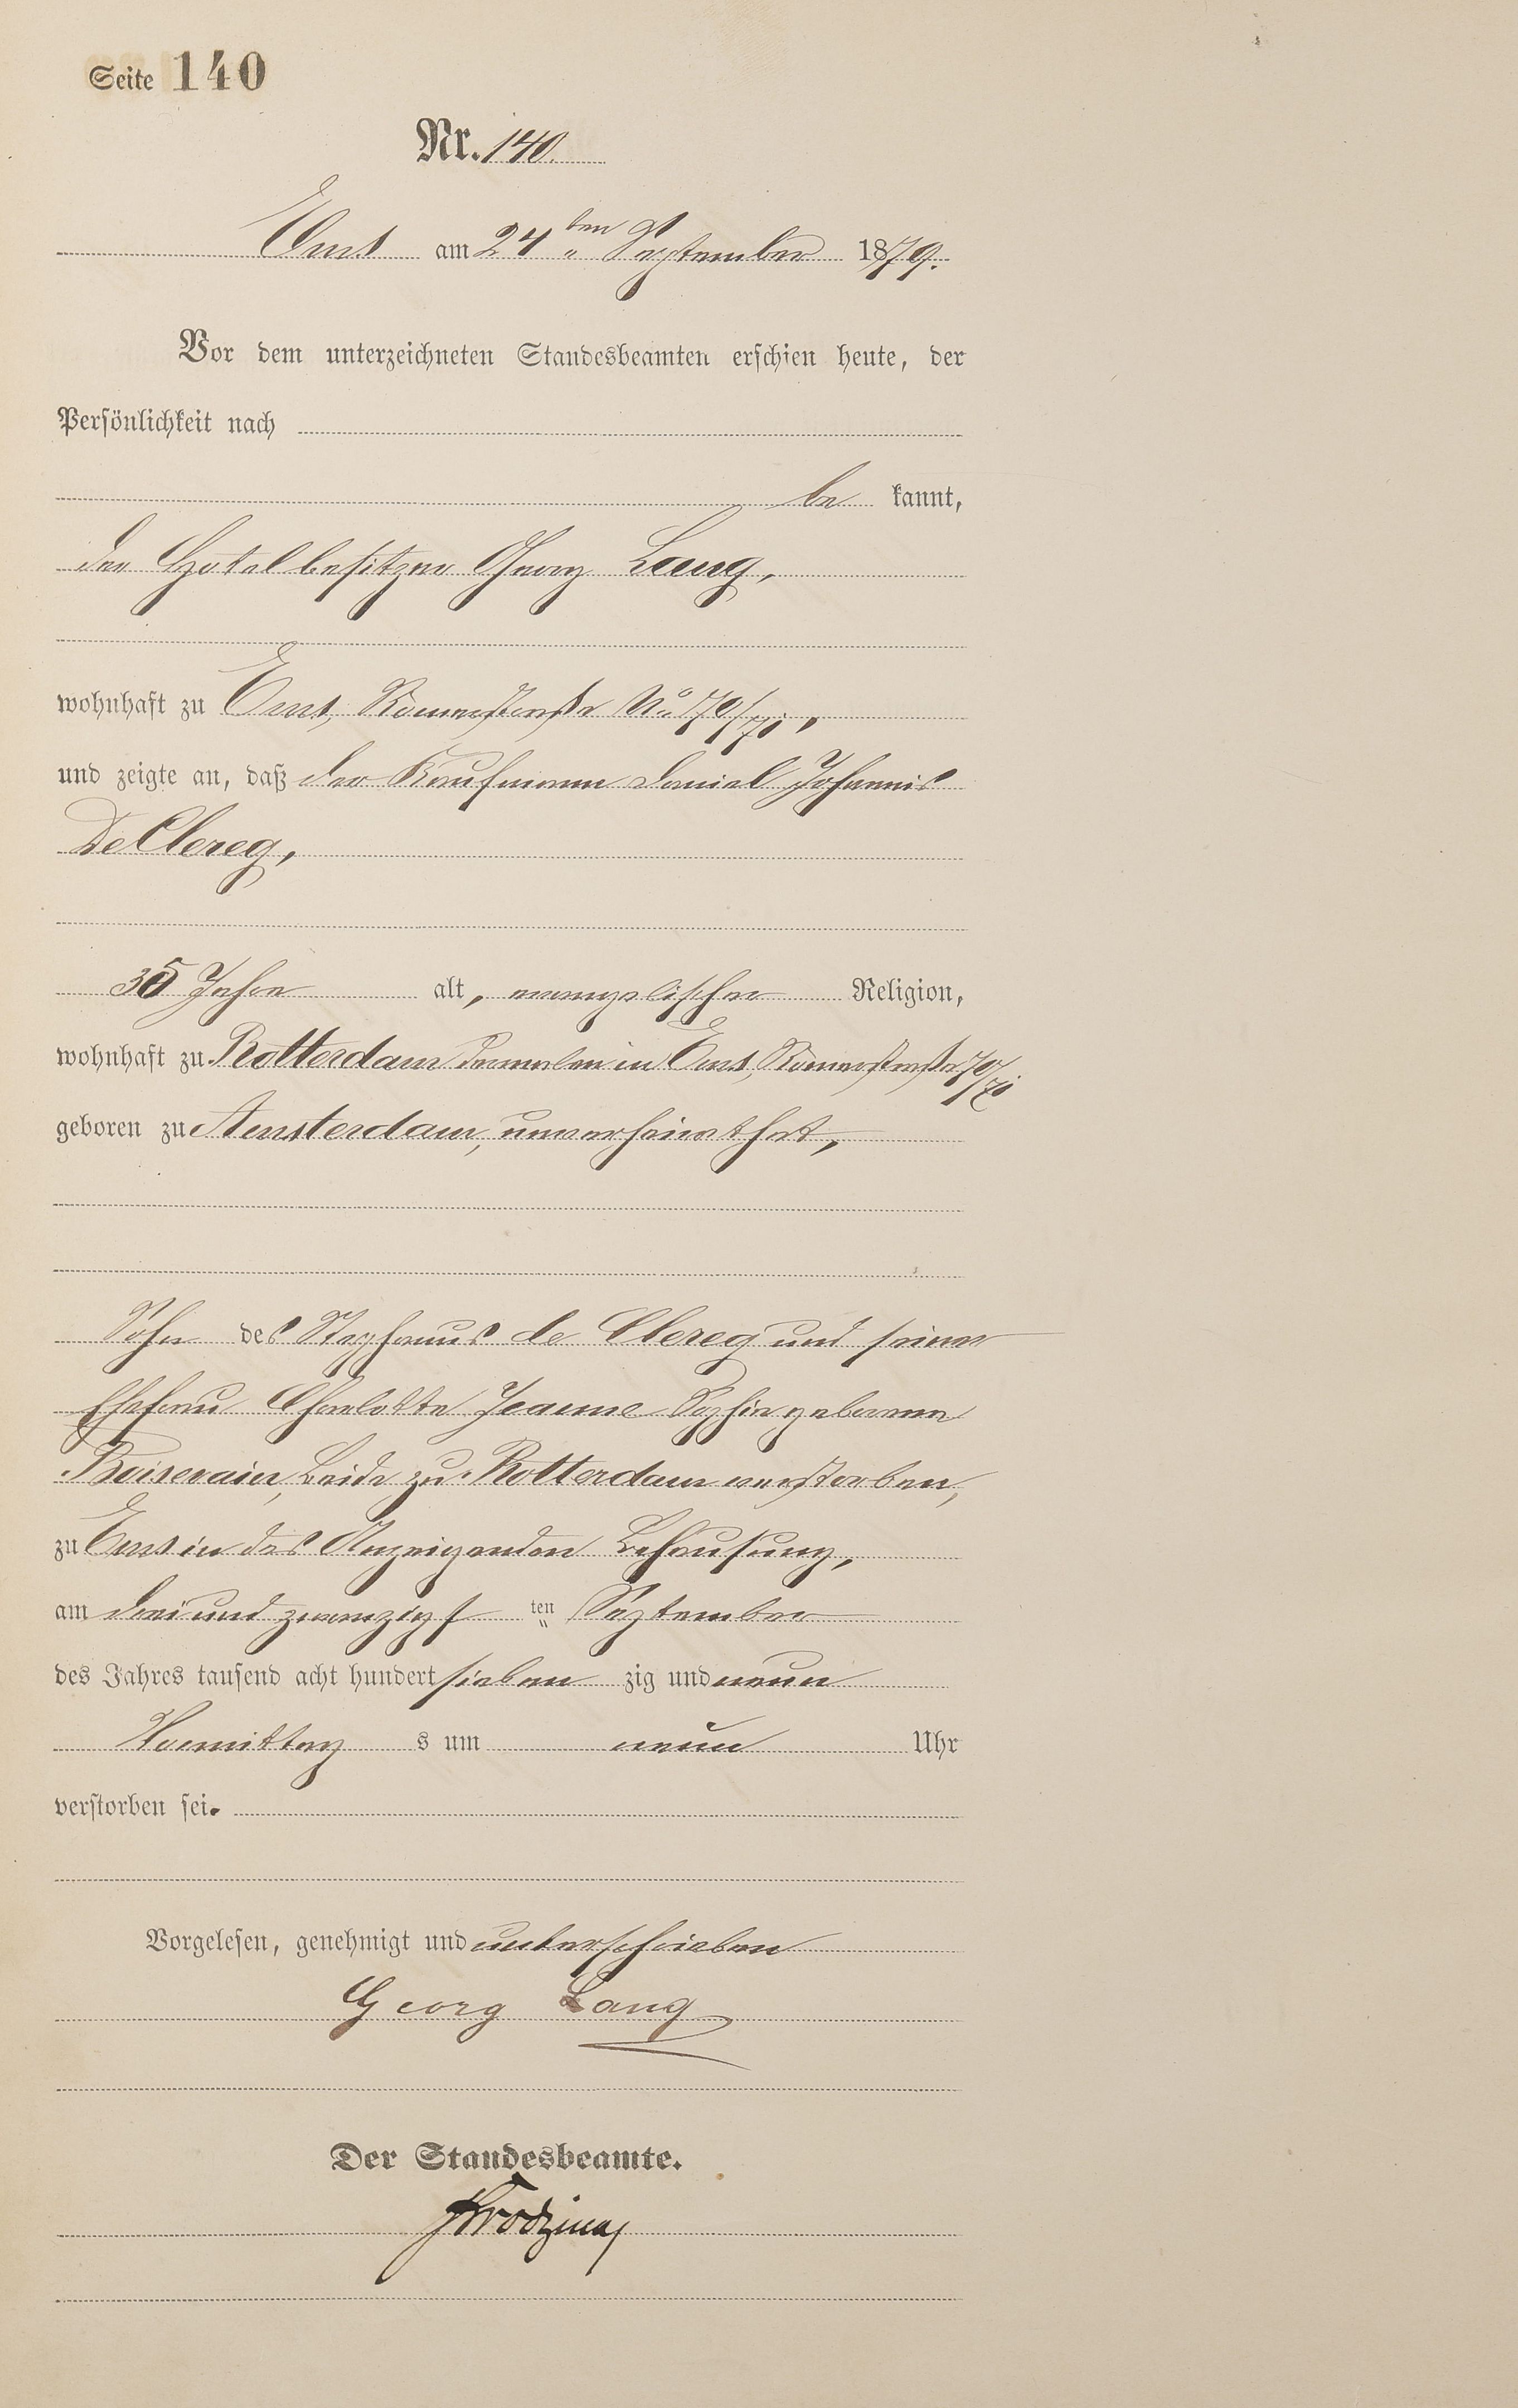 Seite 140
Nr. 140.
Ems am 24ten September 1879.
Vor dem unterzeichneten Standesbeamten erschien heute, der
Persönlichkeit nach
be kannt,
der Hotelbesitzer Georg Lang,
wohnhaft zu Ems, Römerstraße No 70/71,
und zeigte an, daß der Kaufmann Daniel Johannis
De Clereq,
35 Jahre alt, evangelischer Religion,
wohnhaft zu Rotterdam dermalen in Ems, Römerstraße 70/71
geboren zu Amsterdam, unverheirathet,
Sohn des Stephanus de Clereq und seiner
Ehefrau Charlotte Jeanne Sophie geborene
Boisevain, beide zu Rotterdam verstorben,
zu Ems in des Anzeigenden Behausung,
am drei und zwanzigs ten September
des Jahres tausend acht hundert sieben zig und neun
Vormittag s um neun Uhr
verstorben sei.
Vorgelesen, genehmigt und unterschrieben
Georg Lang
Der Standesbeamte.